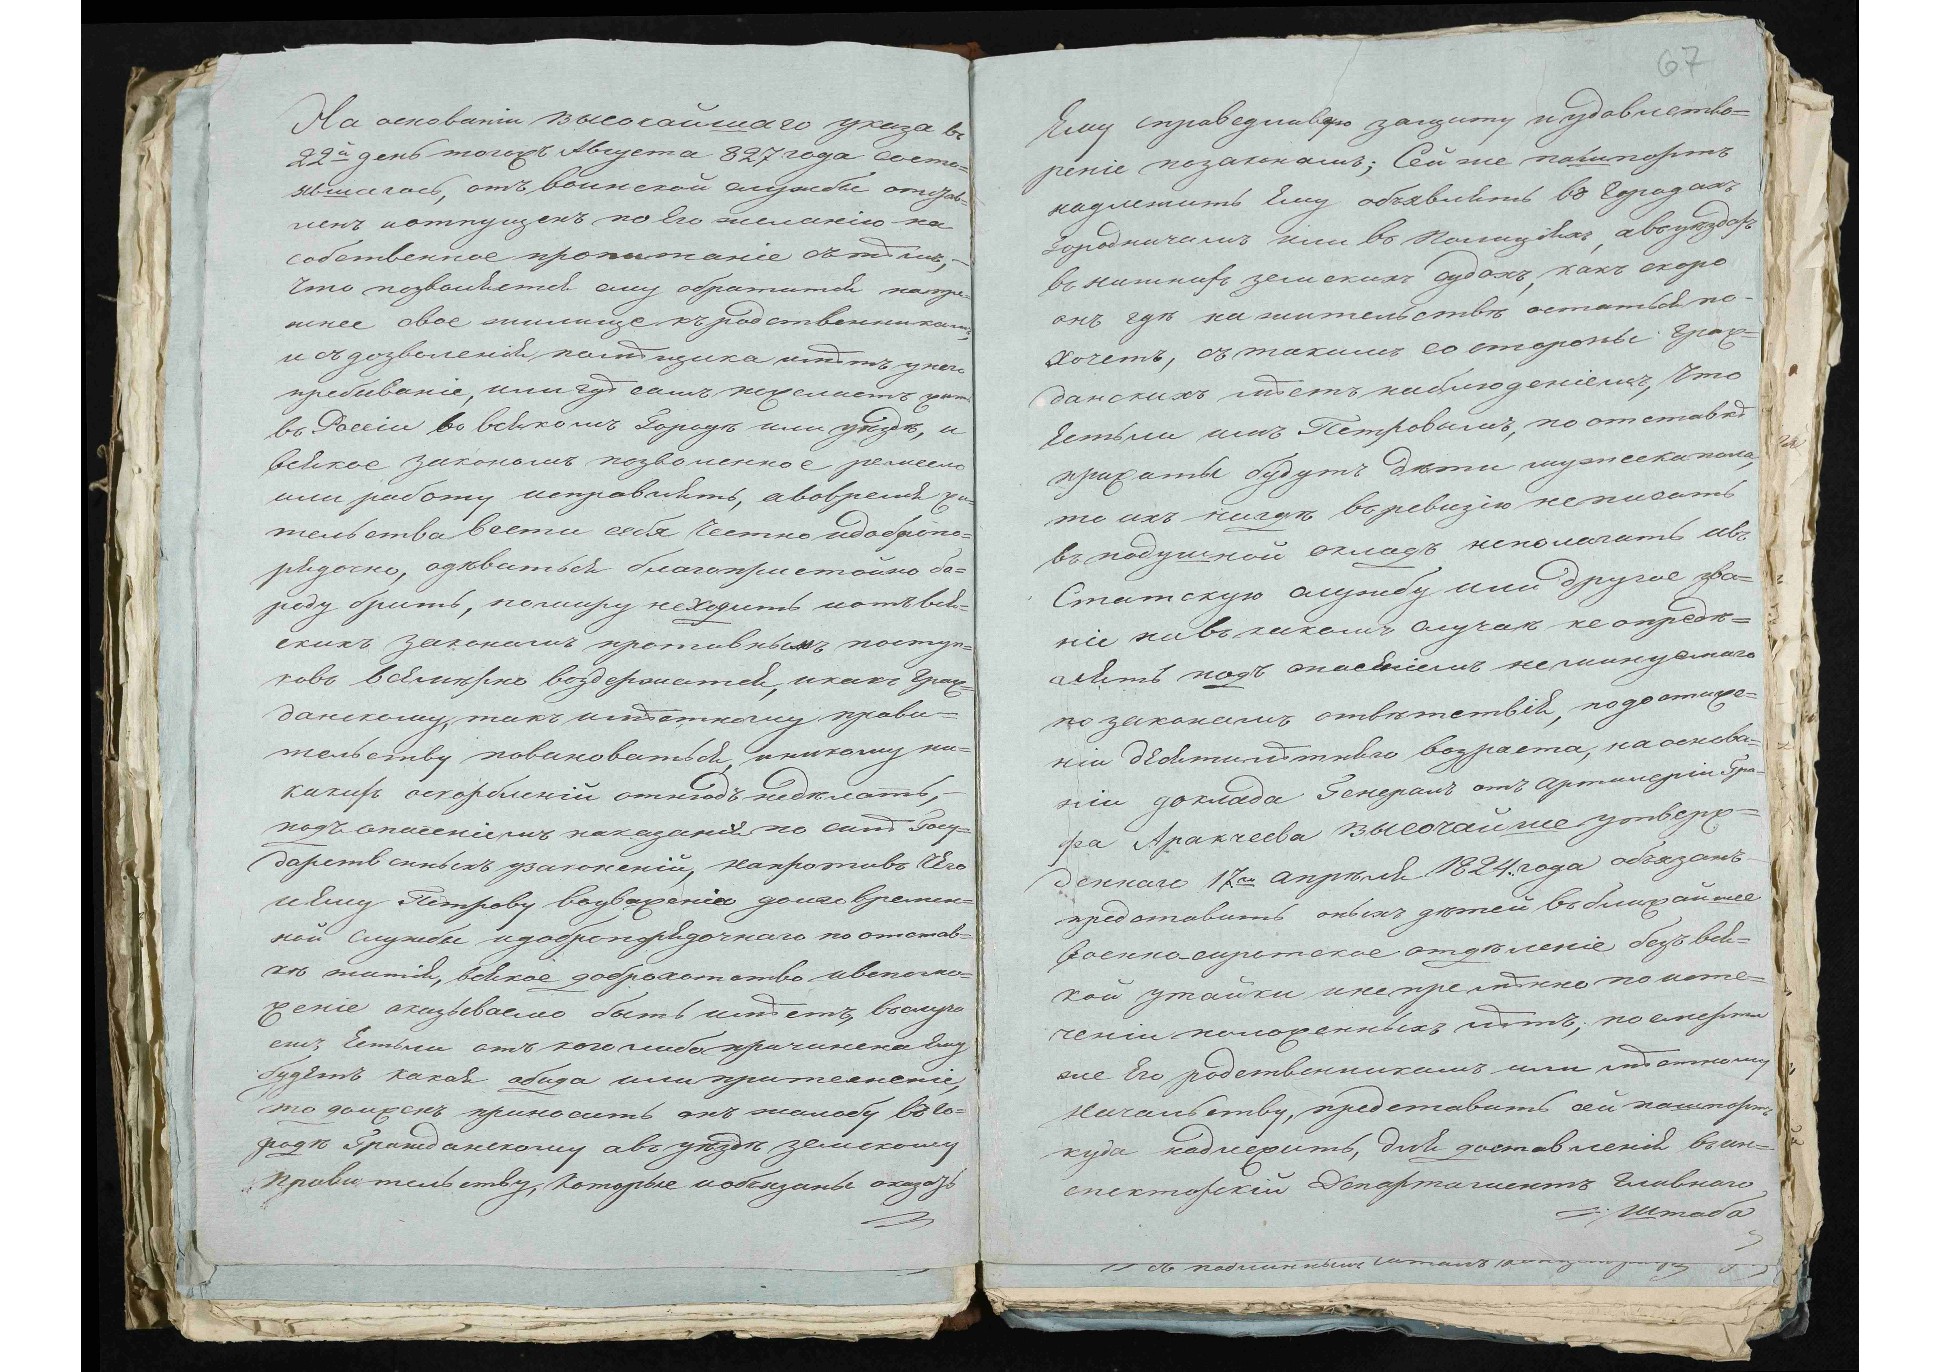 На основаніи высочайшаго указа въ
22й день того жъ Августа 827 года состо=
явшагось, отъ воинской службы отстав=
ленъ и отпущенъ по Его желанію на
собственное пропитаніе съ тѣмъ,—
Что позволяется ему обратится на пре=
жнее свое жилище къ родственникамъ,
и съ дозволенія помѣщика имѣть у него
пребываніе, или гдѣ самъ пожелаетъ жить
въ Россіи во всякомъ Городѣ или уѣздѣ, и
всякое закономъ позволенное ремесло
или работу исправлять, а вовремя жи=
тельства вести себя Честно и добропо=
рядочно, одѣваться благопристойно бо=
роду брить, по миру не ходить и отъ вся=
скихъ законамъ противныхъ поступ=
ковъ всемѣрно воздержатся, и какъ Граж=
данскому, такъ и мѣстному прави=
тельству повиноваться, и никому ни=
какихъ оскорбленій отнюдь не дѣлать,—
подъ опасеніемъ наказанія по силѣ Госу=
дарственныхъ узаконеній, напротивъ Чего
и Ему Петрову во уваженіе долговремен=
ной службы и добропорядочнаго по отстав=
кѣ житія, всякое доброхотство и вспомо=
женіе оказываемо быть имѣетъ, въ случа
емъ Естьли отъ кого либо причинена Ему
будетъ какая обида или притесненіе,
то долженъ приносить онъ жалобу въ Го=
родѣ Гражданскому а въ уѣздѣ земскому
правительству, Которые и обязаны оказать
67
Ему справедливую защиту и удовлетво=
реніе по законамъ; Сей же пашпортъ
надлежитъ Ему объявлять въ Городахъ
Городничимъ или въ Полиціяхъ, а въ уѣздахъ
въ нижнихъ земскихъ судахъ, какъ скоро
онъ гдѣ на жительствѣ остаться по-
хочетъ, съ такимъ со стороны Граж=
данскихъ мѣстъ наблюденіемъ, Что
Естьли имъ Петровымъ, по отставкѣ
прижаты будутъ дѣти мужеска пола,
то ихъ нигдѣ въ ревизію не писать
въ подушной окладъ не полагать и въ
Статскую службу или другое зва=
ніе ни въ какомъ случаѣ не опредѣ=
лять подъ опасеніемъ неминуемаго
по законамъ отвѣтствія, по достиже=
ніи десятилѣтняго возраста, на основа=
ніи доклада Генерала отъ артилеріи Гра=
фа Аракчеева высочайше утверж=
деннаго 17го апрѣля 1824. года обязанъ
представить оныхъ дѣтей въ ближайшее
военно-сиротское отдѣленіе безъ вся=
кой утайки и непремѣнно по исте=
ченіи положенныхъ лѣтъ; по смерти
же Его родственникамъ или мѣстному
начальству, представить сей пашпортъ
куда надлежитъ, для доставленія въ ин=
спекторскій Департаментъ Главнаго
Штаба
съ подлиннымъ